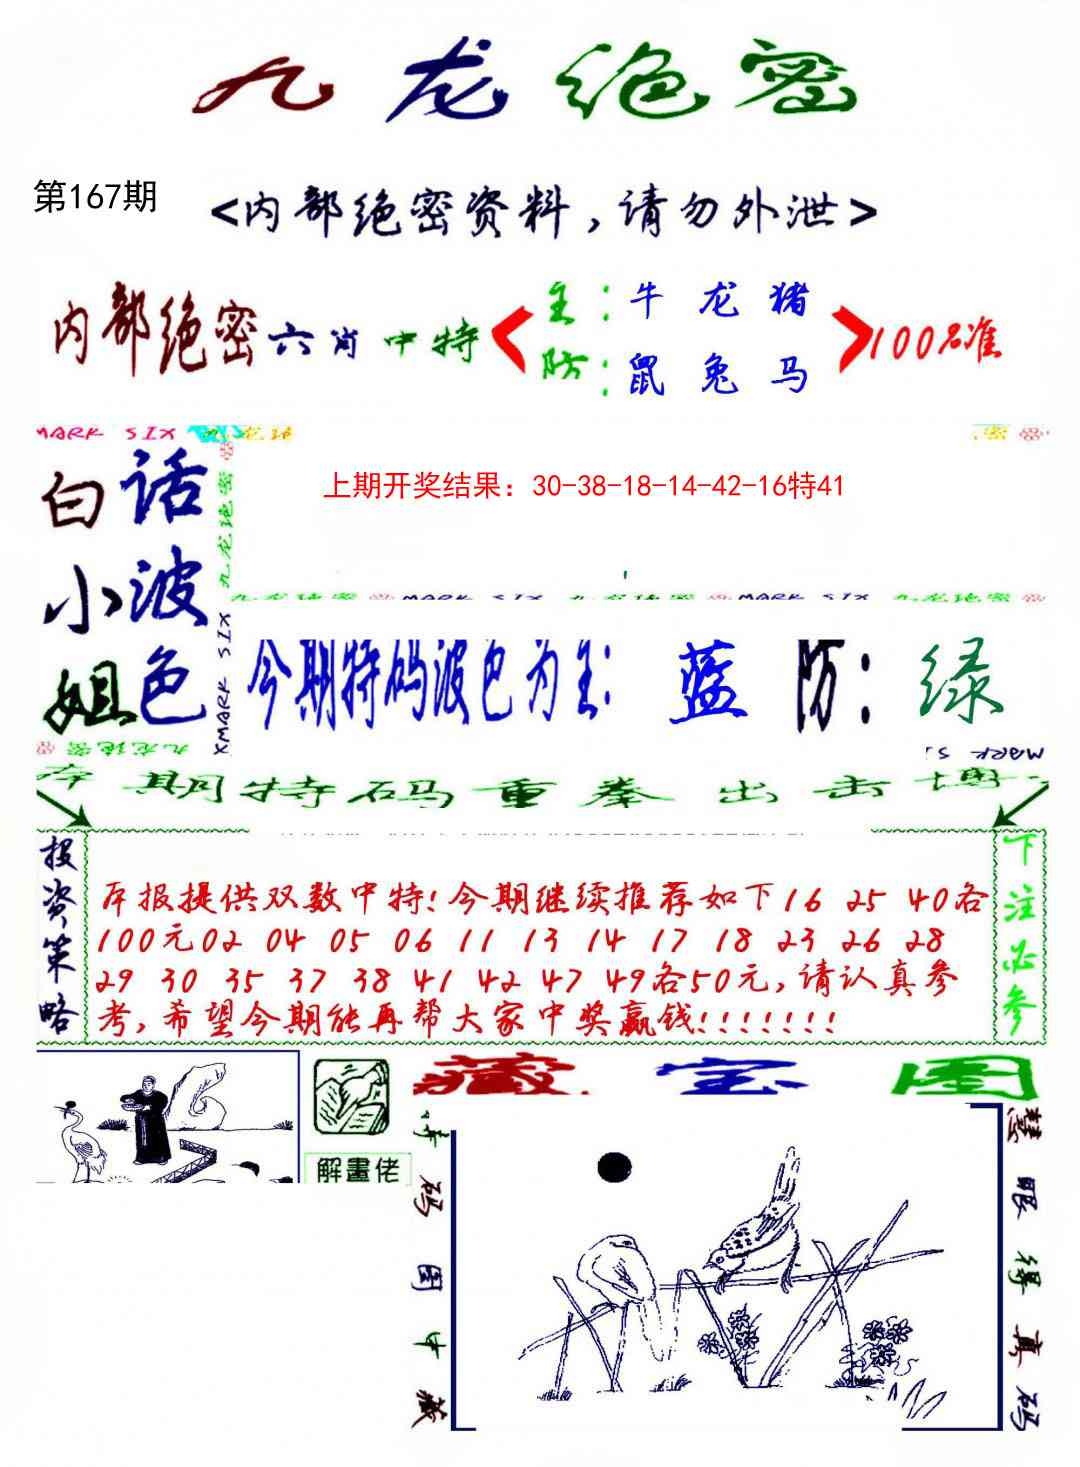 九龙绝密
第167期
<内部绝密资料,请勿外泄>
内部绝密六肖中特
主:牛 龙 猪
防:鼠 兔 马
100%准
MARK SIX 九龙绝密
九龙绝密
上期开奖结果：30-38-18-14-42-16特41
白小姐
话波色
九龙绝密 MARK SIX 九龙绝密 MARK SIX 九龙绝密
MARK SIX
今期特码波色为主: 蓝 防: 绿
九龙绝密
MARK SI
本期特码重拳出击博
投资策略
本报提供双数中特!今期继续推荐如下16 25 40各
100元02 04 05 06 11 13 14 17 18 23 26 28
29 30 35 37 38 41 42 47 49各50元,请认真参
考,希望今期能再帮大家中奖赢钱!!!!!!!
下注必参
解畫佬
藏宝图
码图中藏
慧眼得真码